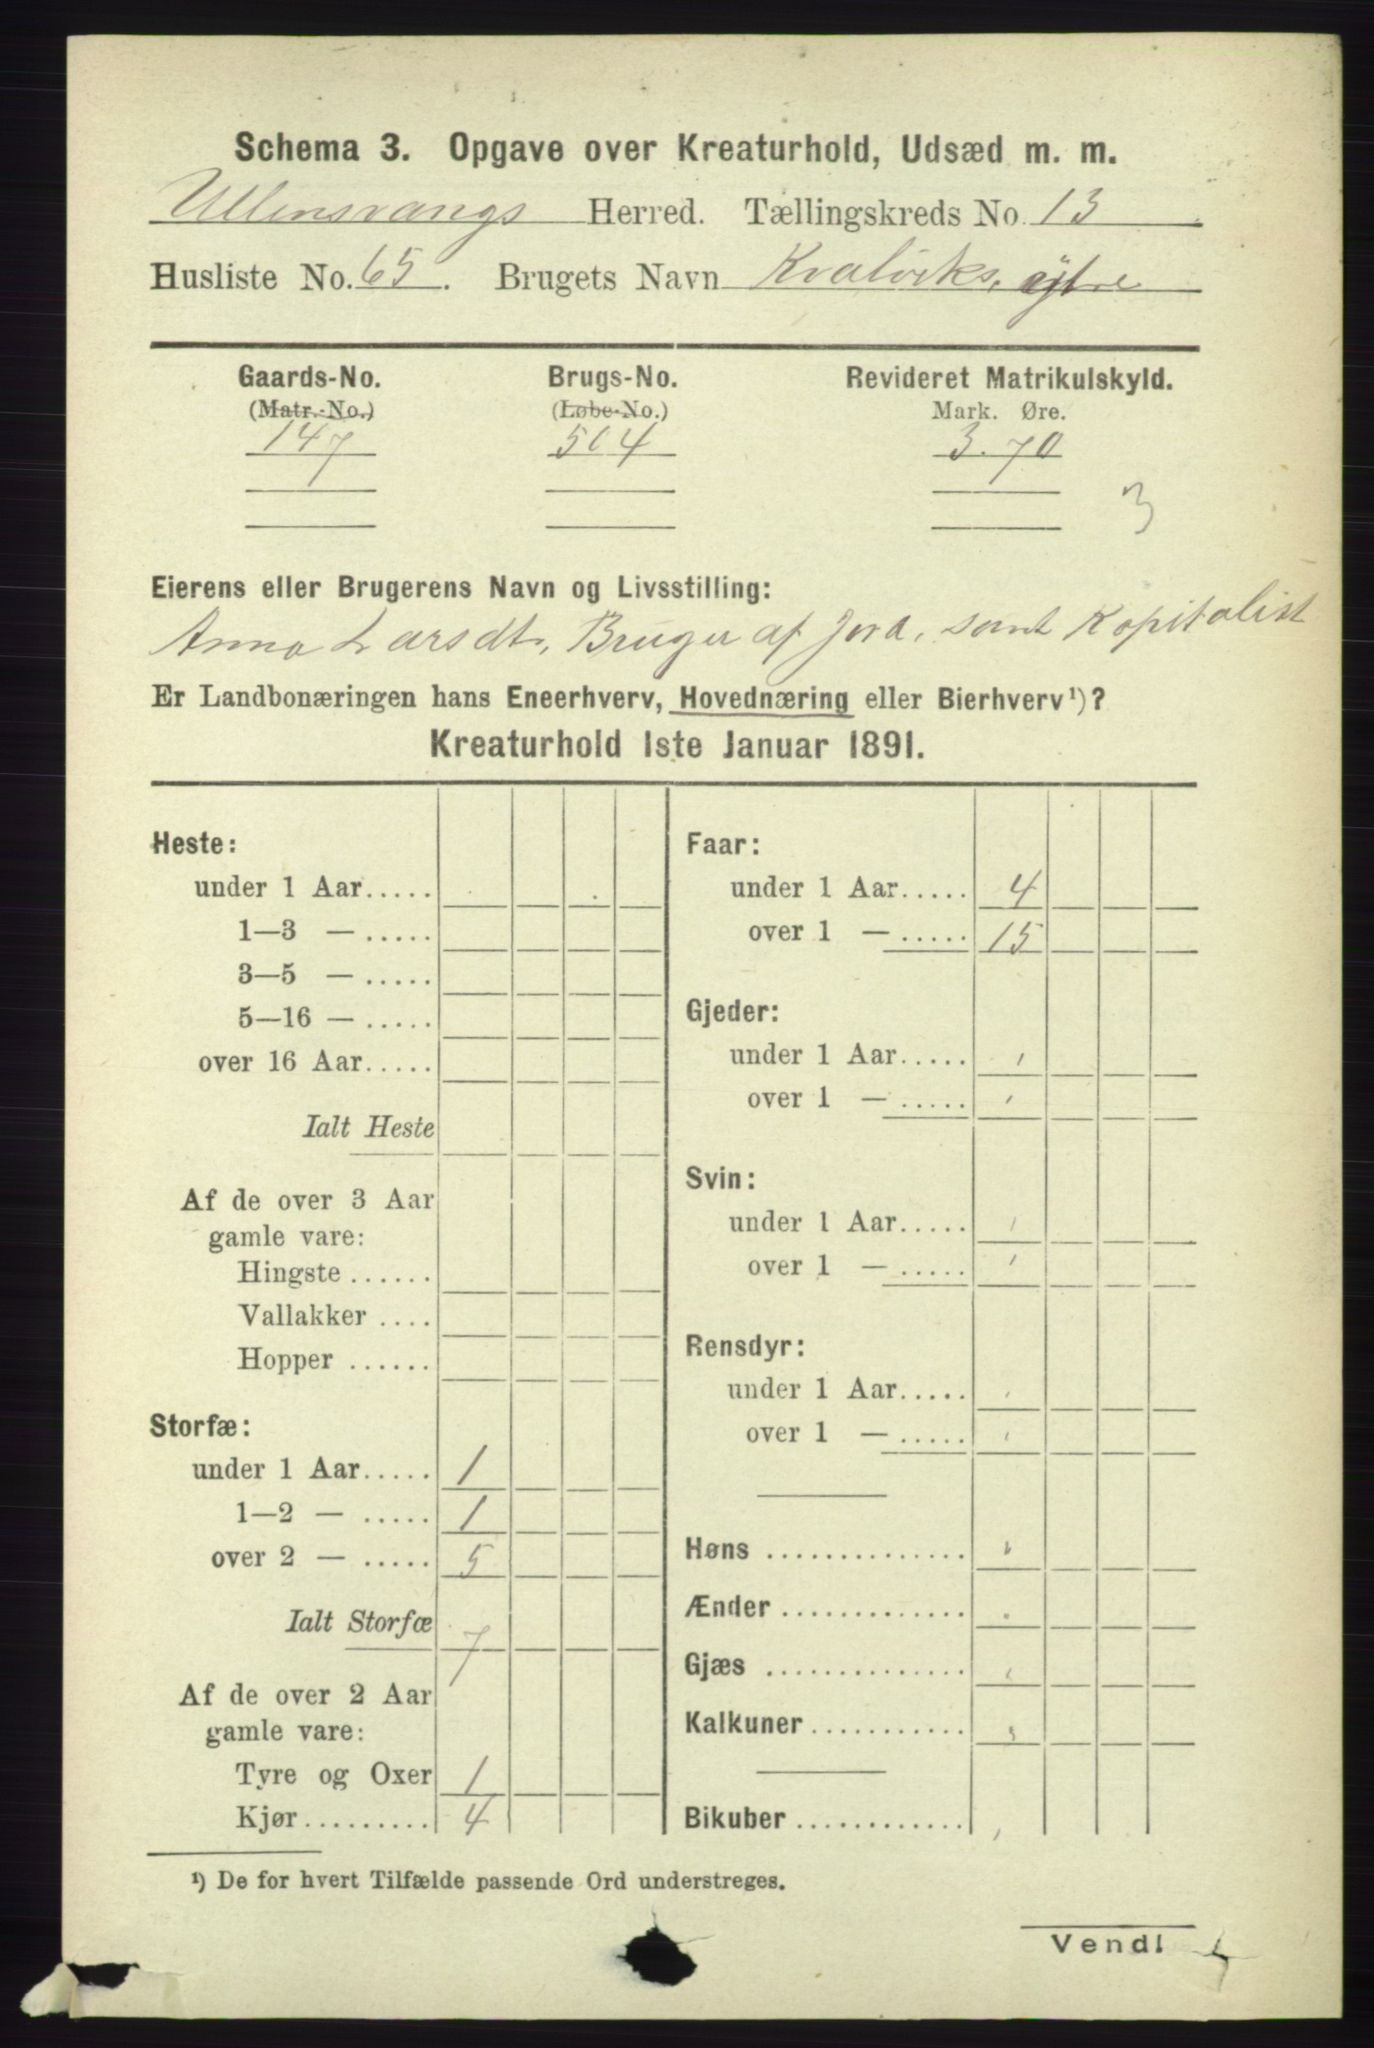 Schema 3. Opgave over Kreaturhold, Udsæd m. m.
Ullensvangs Herred. Tællingskreds No. 13.
Husliste No. 65. Brugets Navn ytre
Gaards-No. Brugs-No. Revideret Matrikulskyld.
(Matr.-No.) (Løbe-No.) Mark. Øre.
147 3.70
3
Eierens eller Brugerens Navn og Livsstilling:
Anna Larsdt, Bruger af Jord, samt Kapitalist
Er Landbonæringen hans Eneerhverv, Hovednæring eller Bierhverv¹)?
Kreaturhold 1ste Januar 1891.
Heste:
under 1 Aar.....
1—3 — .....
3—5 — .....
5—16 — .....
over 16 Aar.....
Ialt Heste
Af de over 3 Aar
gamle vare:
Hingste ......
Vallakker ....
Hopper ......
Storfæ:
under 1 Aar..... 1
1—2 — ..... 1
over 2 — ..... 5
Ialt Storfæ 7
Af de over 2 Aar
gamle vare:
Tyre og Oxer 1
Kjør......... 4
Faar:
under 1 Aar..... 4
over 1 — ..... 15
Gjeder:
under 1 Aar.....
over 1 — .....
Svin:
under 1 Aar.....
over 1 — .....
Rensdyr:
under 1 Aar.....
over 1 — .....
Høns ..............
Ænder .............
Gjæs ..............
Kalkuner...........
Bikuber ............
¹) De for hvert Tilfælde passende Ord understreges.
Vend!